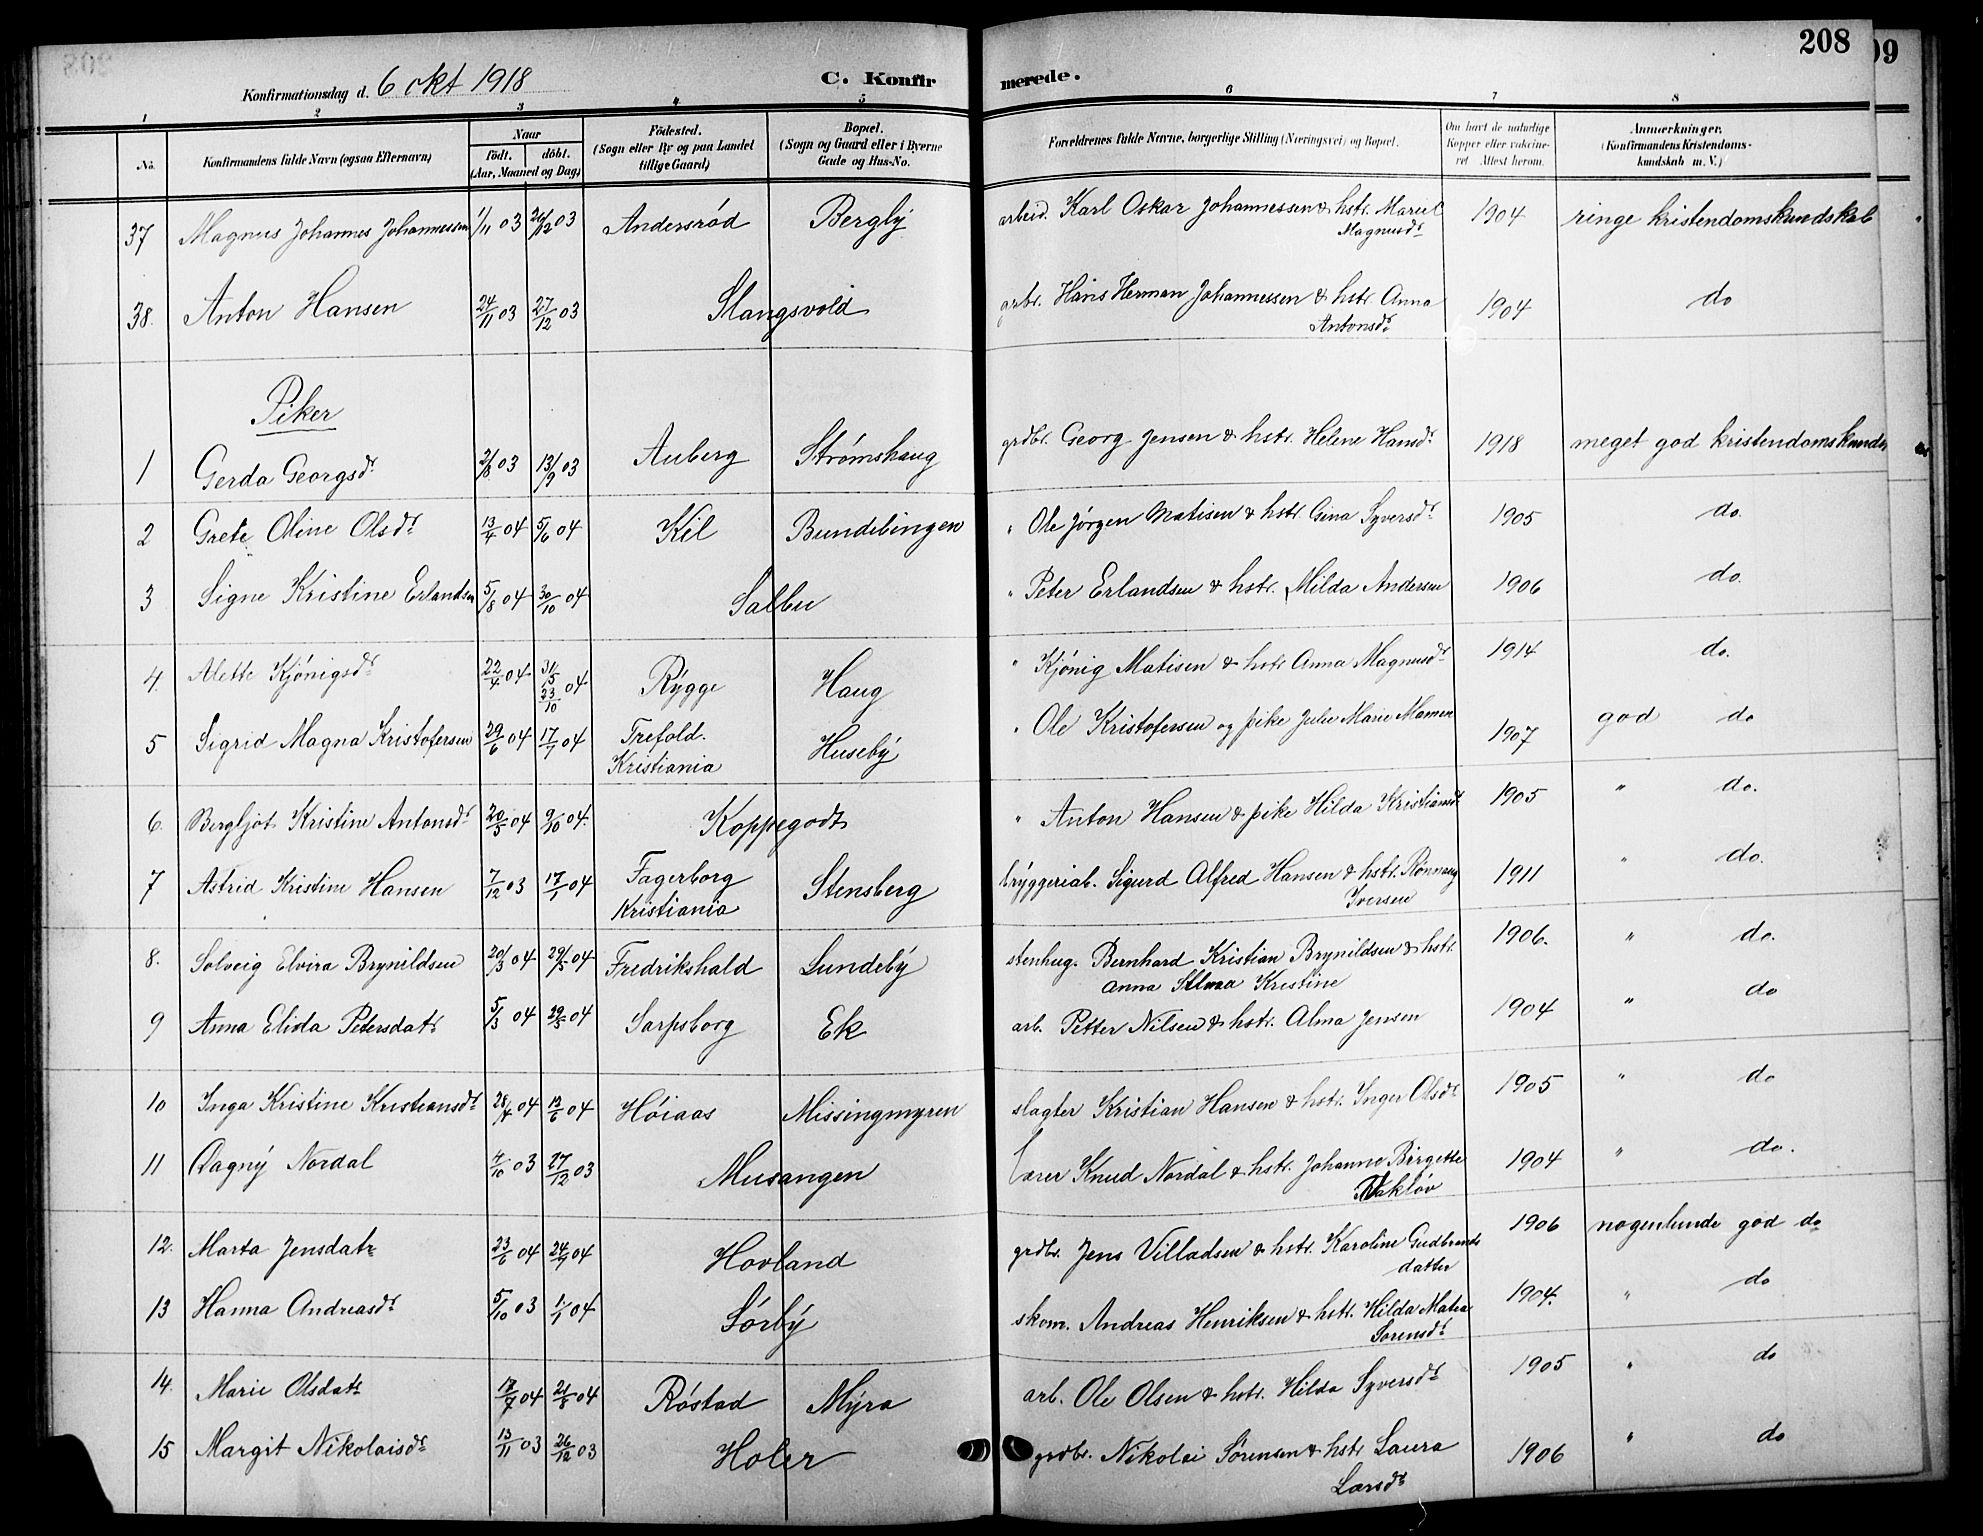 208
Konfirmationsdag d. 6 okt 1918
C. Konfirmerede.
1 2 3 4 5 6 7 8
No. Konfirmandens fulde Navn (ogsaa Efternavn) Naar födt. döbt. (Aar, Maaned og Dag) Födested. (Sogn eller By og paa Landet tillige Gaard) Bopæl. (Sogn og Gaard eller i Byerne Gade og Hus-No. Forældrenes fulde Navne, borgerlige Stilling (Næringsvei) og Bopæl. Om havt de naturlige Kopper eller vaccineret Attest herom. Anmærkninger. (Konfirmandens Kristendomskundskab m. V.)
37 Magnus Johannes Johannessen 1/11 03 26/12 03 Andersröd Bergbý arbeid. Karl Oskar Johannessen & hstr. Mariel Magnusdr 1904 ringe kristendomskundskab
38. Anton Hansen 24/11 03 27/12 03 Slangsvold grbr. Hans Herman Johannessen & hstr Anna Antonsdr 1904 do
Piker
1 Gerda Georgsdr 2/8 03 13/9 03 Auberg Strömshaug grdbr. Georg Jensen & hstr. Helene Hansdr 1918 meget god kristendomskunds
2 Grete Oline Olsdr 13/4 04 5/6 04 Kil Bundibingen " Ole Jörgen Matisen & hstr. Gina Syversdr 1905 do.
3 Signe Kristine Erlandsen 5/8 04 30/10 04 Salbu " Peter Erlandsen & hstr. Milda Andersen 1906 do.
4. Alette Kjönigsdr 22/4 04 31/5 23/10 04 Rýgge Haug " Kjönig Matisen & hstr Anna Magnusdr 1914 do.
5 Sigrid Magna Kristofersen 29/6 04 17/7 04 Trefold. Kristiania Husebý " Ole Kristofersen og pike Julie Marie Mamen 1907 god do
6. Bergljot Kristine Antonsdr 20/5 04 9/10 04. Koppegodt " Anton Hansen & pike Hilda Kristiansdr 1905 " do.
7 Astrid Kristine Hansen 7/12 03 17/1 04 Fagerborg Kristiania Stensberg brýggeriab. Sigurd Alfred Hansen & hstr. Rönnaug Iversen 1911 " do.
8. Solveig Elvira Brynildsen 20/3 04 29/5 04 Fredrikshald Lundebý stenhug. Bernhard Kristian Brynildsen & hstr. Anna Selma Kristine 1906. " do.
9 Anna Elida Petersdatr 5/3 04 29/5 04 Sarpsborg Ek arb. Petter Nilsen & hstr. Alma Jensen 1904 " do
10 Inga Kristine Kristiansdr 28/4 04 12/6 04 Höiaas Missingmyren slagter Kristian Hansen & hstr. Inger Olsdr 1905 " do
11 Dagný Nordal 4/10 03 27/12 03 Musangen lærer Knud Nordal & hstr. Johanne Birgette 1904 " do.
12. Marta Jensdatr 23/6 04 24/9 04 Hovland grdbr. Jens Villadsen & hstr. Karoline Gudbrands datter 1906 nogenlunde god do
13 Hanna Andreasdr 5/10 03 1/1 04 Sörbý skom. Andreas Henriksen & hstr. Hilda Matea Sorensdr 1904. " do
14. Marie Olsdatr 17/7 04 21/8 04 Röstad Mýra arb. Ole Olsen & hstr. Hilda Syversdr 1905 " do
15 Margit Nikolaisdr 13/11 03 26/12 03 Holer grdbr. Nikolai Sörensen & hstr Laura Larsdr 1906 " do